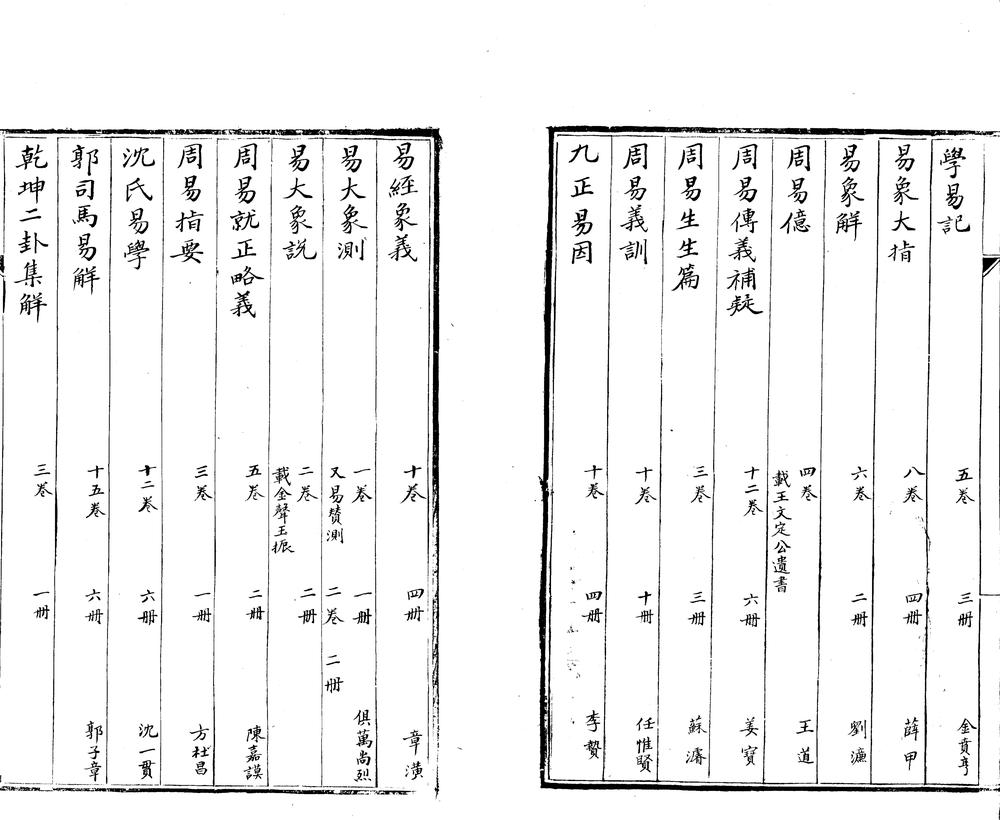 學易記 五卷 三册 金賁亨
易象大指 八卷 四册 薛甲
易象解 六卷 二册 劉濂
周易億 四卷 載王文定公遺書 王道
周易傳義補疑 十二卷 六册 姜寶
周易生生篇 三卷 三册 蘇濬
周易義訓 十卷 十册 任惟賢
九正易因 十卷 四册 李贄
易經象義 十卷 四册 章潢
易大象測 一卷 一册 又易贊測 二卷 二册 俱萬尚烈
易大象説 二卷 二册 載金聲玉振
周易就正略義 五卷 二册 陳嘉謨
周易指要 三卷 一册 方社昌
沈氏易學 十二卷 六册 沈一貫
郭司馬易解 十五卷 六册 郭子章
乾坤二卦集解 三卷 一册